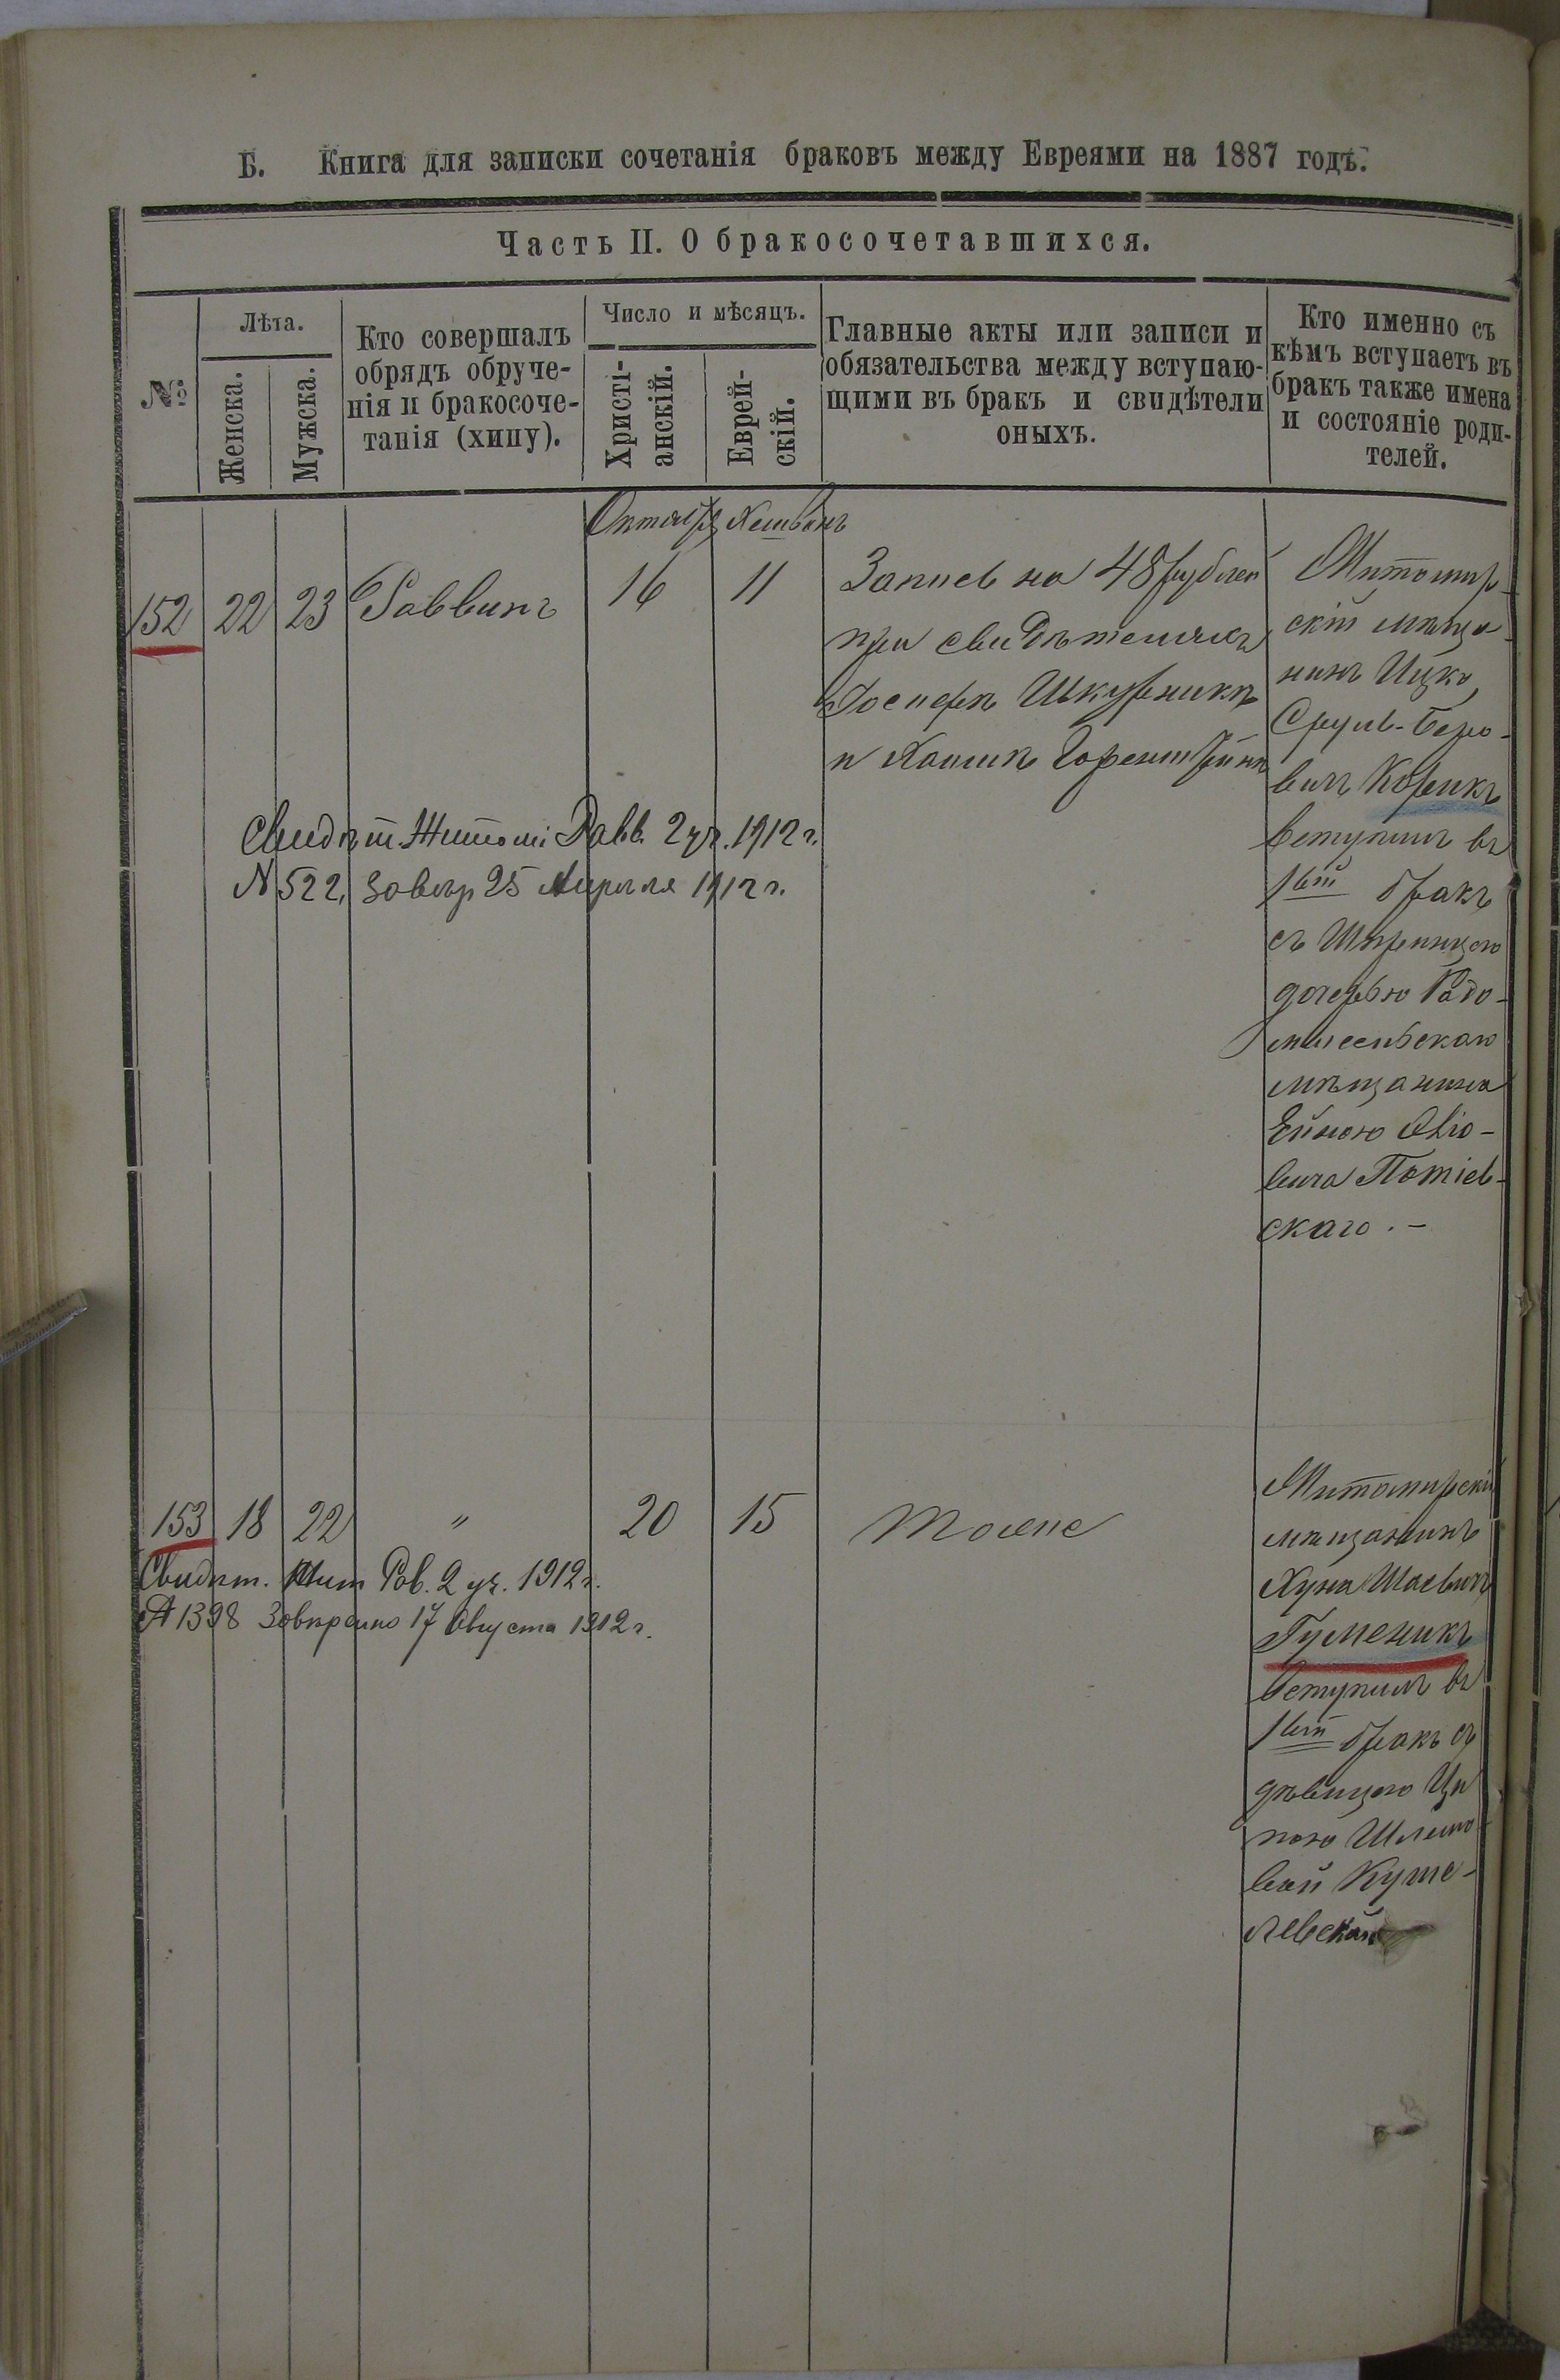 Б. Книга для записки сочетанія браковъ между Евреями на 1887 годъ.
Часть II. О бракосочетавшихся.
№
Лѣта.
Женска.
Мужска.
Кто совершалъ
обрядъ обруче-
нія и бракосоче-
танія (хипу).
Число и мѣсяцъ.
Христі-
анскій.
Еврей-
скій.
Главные акты или записи и
обязательства между вступаю-
щими въ бракъ и свидѣтели
оныхъ.
Кто именно съ
кѣмъ вступаетъ въ
бракъ также имена
и состояніе роди-
телей.
Октября Хешванъ
152 22 23 Раввинъ 16 11
Запись на 48 рублей
при свидѣтеляхъ
Іосифѣ Шкурникѣ
и Хаимѣ Горенштейнѣ
Житомир-
скій мѣща-
нинъ Ицко
Сруль-Беро-
вичъ Корикъ
вступилъ въ
1вый бракъ
съ
дочерью Радо-
мысльскаго
мѣщанина
Потіев-
скаго. –
Свидѣт. Житом. Равв. 2 уч. 1912 г.
N 522, завѣр 25 Апрѣля 1912 г.
153 18 22 " 20 15 Тоже
Житомирскій
мѣщанинъ
Хуна Шаевичъ
Гуменикъ
вступилъ въ
1вый бракъ съ
дѣвицею Ци
пою Шлемо-
вой Куше-
левской
Свидѣт. Жит Рав. 2 уч. 1912 г.
№ 1398 Завѣрено 17 Августа 1912 г.